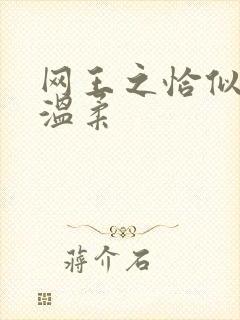 网王之恰似
温柔
蒋介石